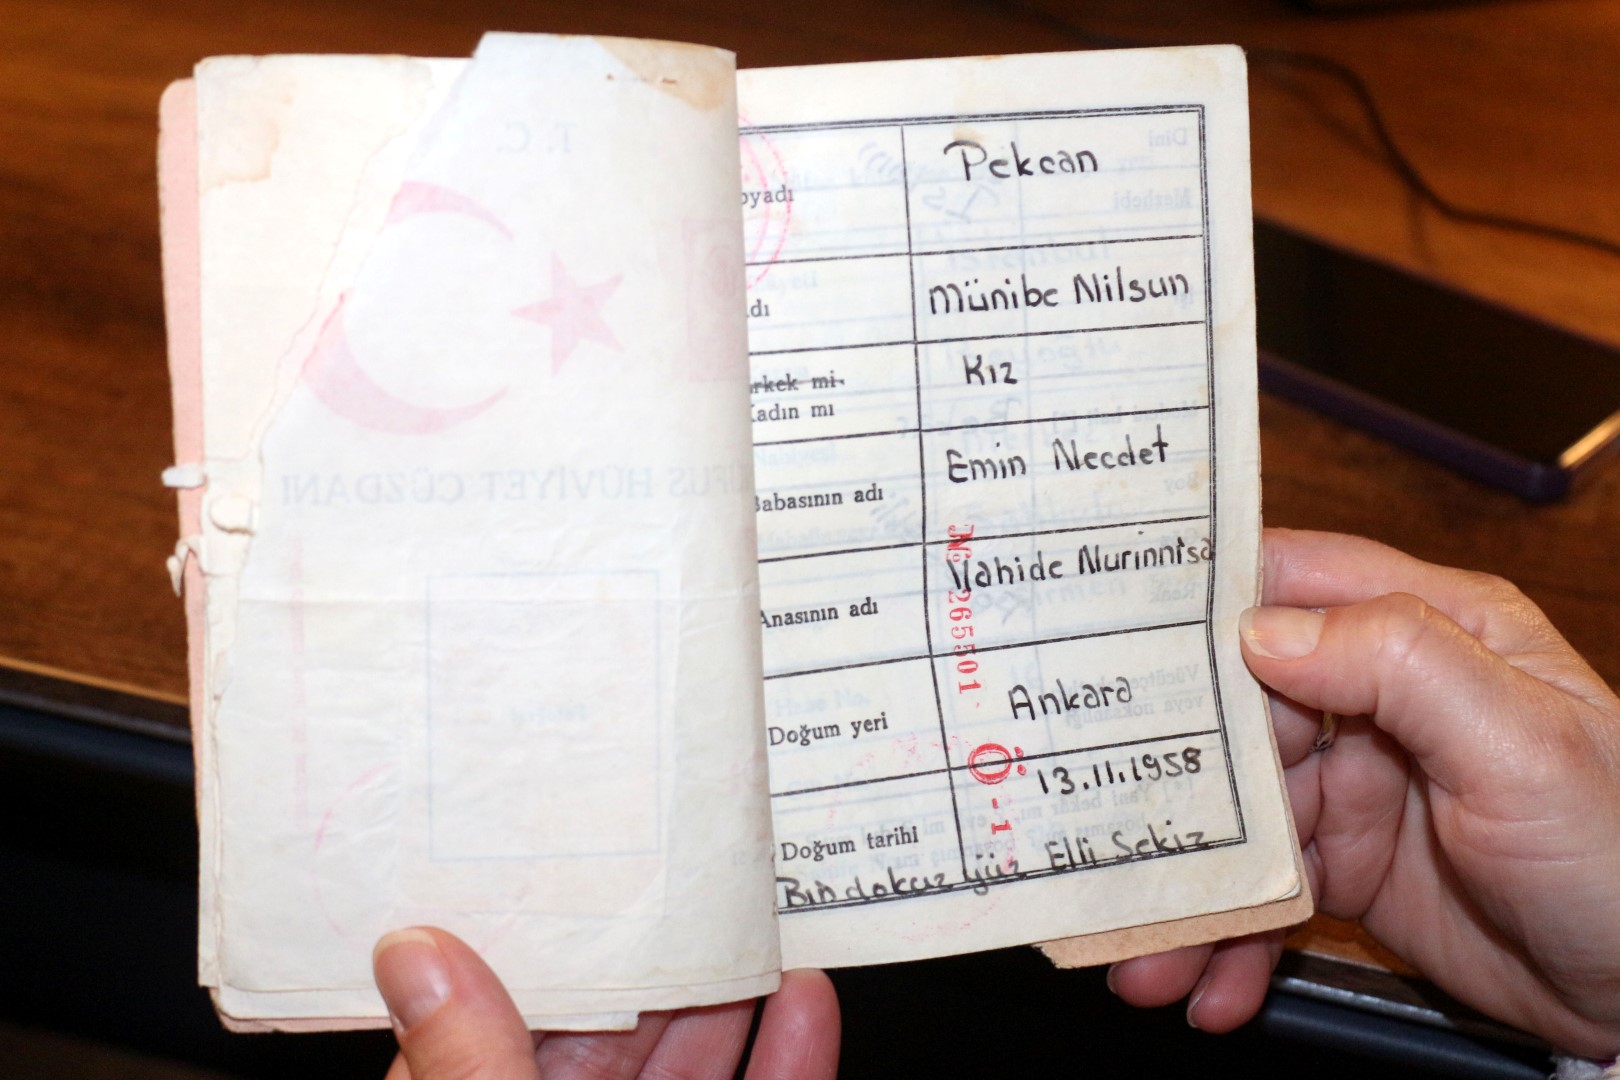 T. C.
NÜFUS HÜVİYET CÜZDANI
oyadı Pekcan
dı Münibe Nilsun
rkek mi
Kadın mı Kız
Babasının adı Emin Necdet
Anasının adı Vahide Nurinnisa
№ 265501
Doğum yeri Ankara
Ö-1
Doğum tarihi 13.11.1958
Bin dokuz yüz Elli Sekiz
Dini
Mezhebi
Boy
Renk